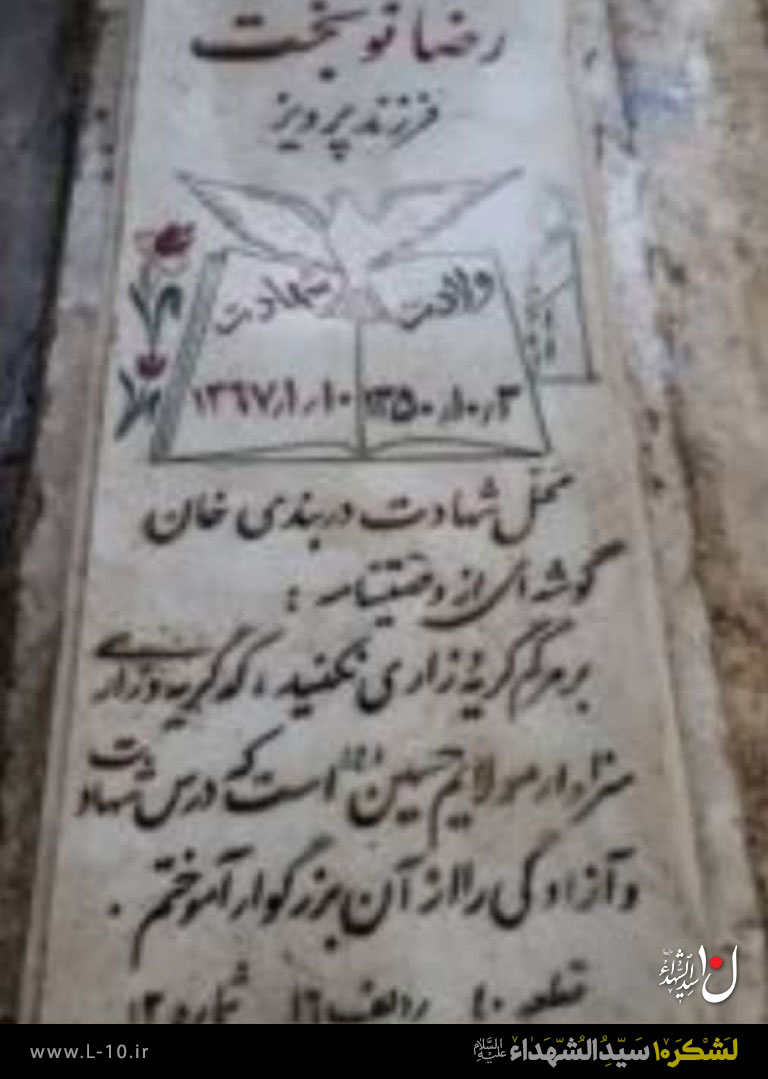 رضا نوبخت
فرزند پرویز
ولادت شهادت
۱۳۵۰٫۱۰٫۳ ۱۳۶۷٫۱٫۱۰
محل شهادت دربندی خان
گوشه ای از وصیتنامه :
بر مرگم گریه زاری نکنید ، که گریه وزاری
سزاوار مولایم حسین (ع) است که درس شهادت
و آزادگی را از آن بزرگوار آموختم .
قطعه ۴۰ ردیف ۱۶ شماره ۱۲
ل۱۰ سیدالشهداء
www.L-10.ir
لشکر۱۰ سَیِّدُالشُّهَداء عَلَیهِ السَّلام